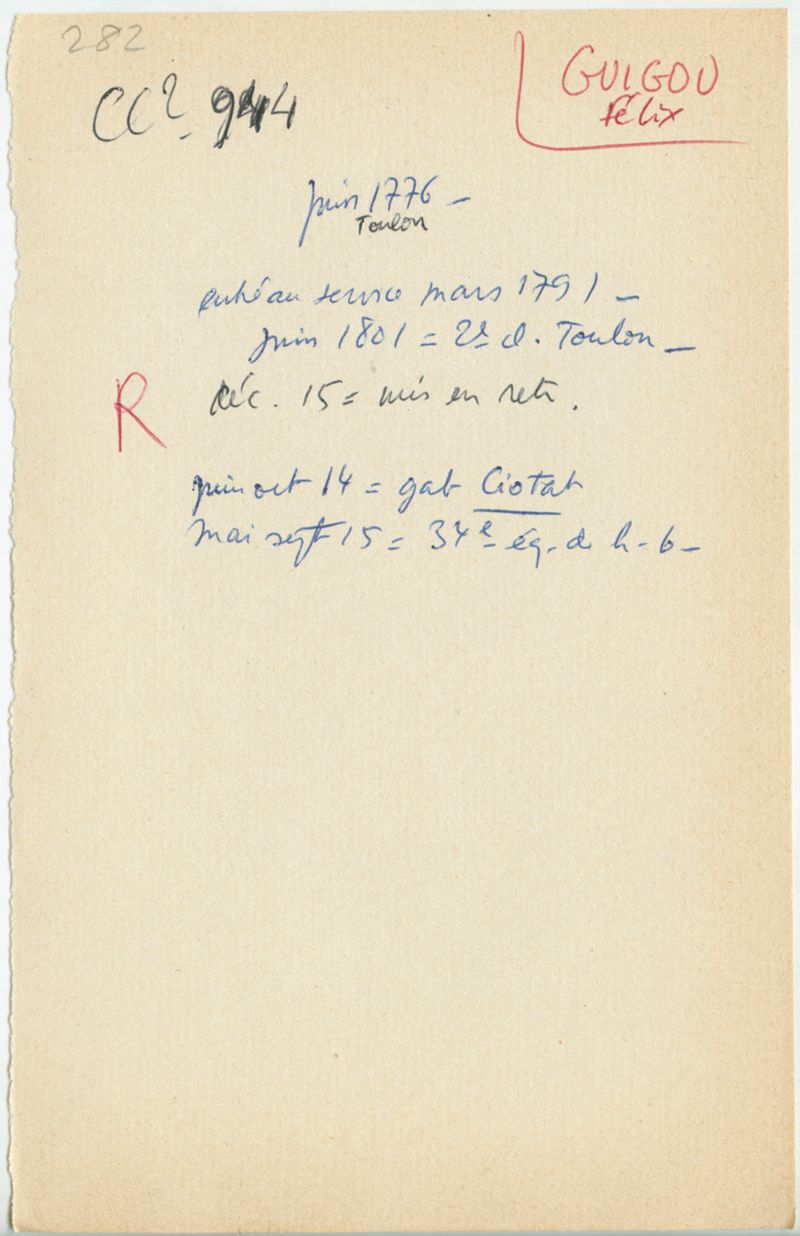 282
GUIGOU
Félix
CC² 944
juin 1776 -
Toulon
entré au service mars 1791 -
juin 1801 = 2e cl. Toulon -
R
déc. 15 = mis en retr.
juin oct 14 = gab Ciotat
mai sept 15 = 34e éq. de h-b-